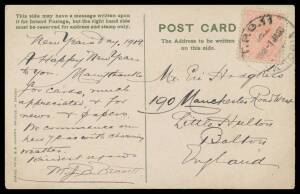 This side may have a message written upon
it for Inland Postage, but the right hand side
must be reserved for address and stamp only.
POST CARD
The Address to be written
on this side.
New Years Day, 1908
A Happy New Year
to you. Many thanks
for cards, much
appreciated, & for
news & papers.
We commence our
new year with charming
weather.
Kindest regards
Mr.
190 Manchester Road
Little Hulton
Bolton
England